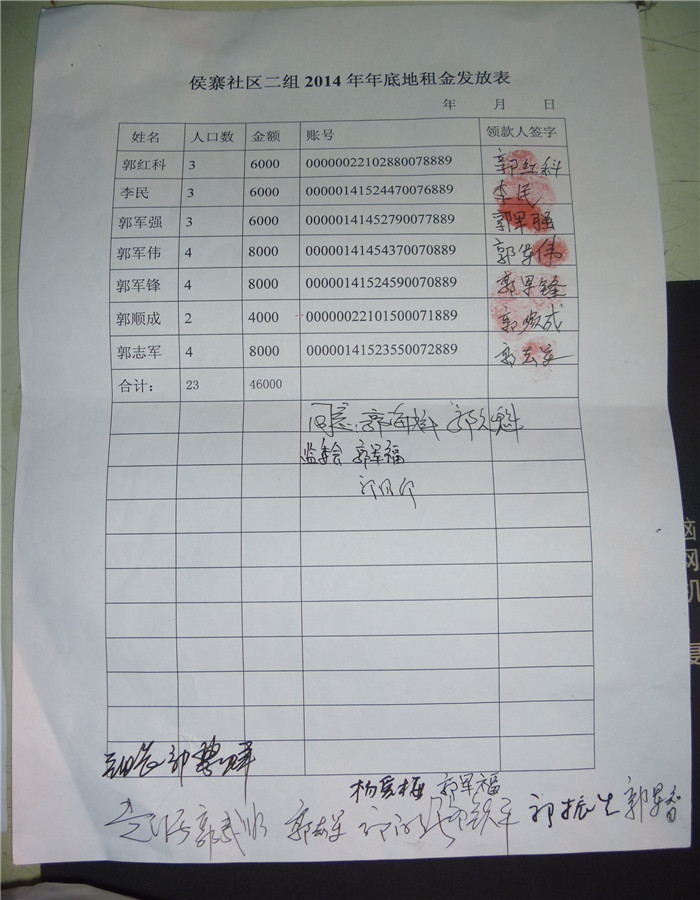 侯寨社区二组 2014 年年底地租金发放表
年 月 日
姓名 人口数 金额 账号 领款人签字
郭红科 3 6000 00000022102880078889 郭红科
李民 3 6000 00000141524470076889 李民
郭军强 3 6000 00000141452790077889 郭军强
郭军伟 4 8000 00000141454370070889 郭军伟
郭军锋 4 8000 00000141524590070889 郭军锋
郭顺成 2 4000 00000022101500071889 郭顺成
郭志军 4 8000 00000141523550072889 郭志军
合计： 23 46000
同意：郭海斌
监委会 郭军福
组长
杨爱梅 郭军福
郭志军 郭振生
脑
网
机
复